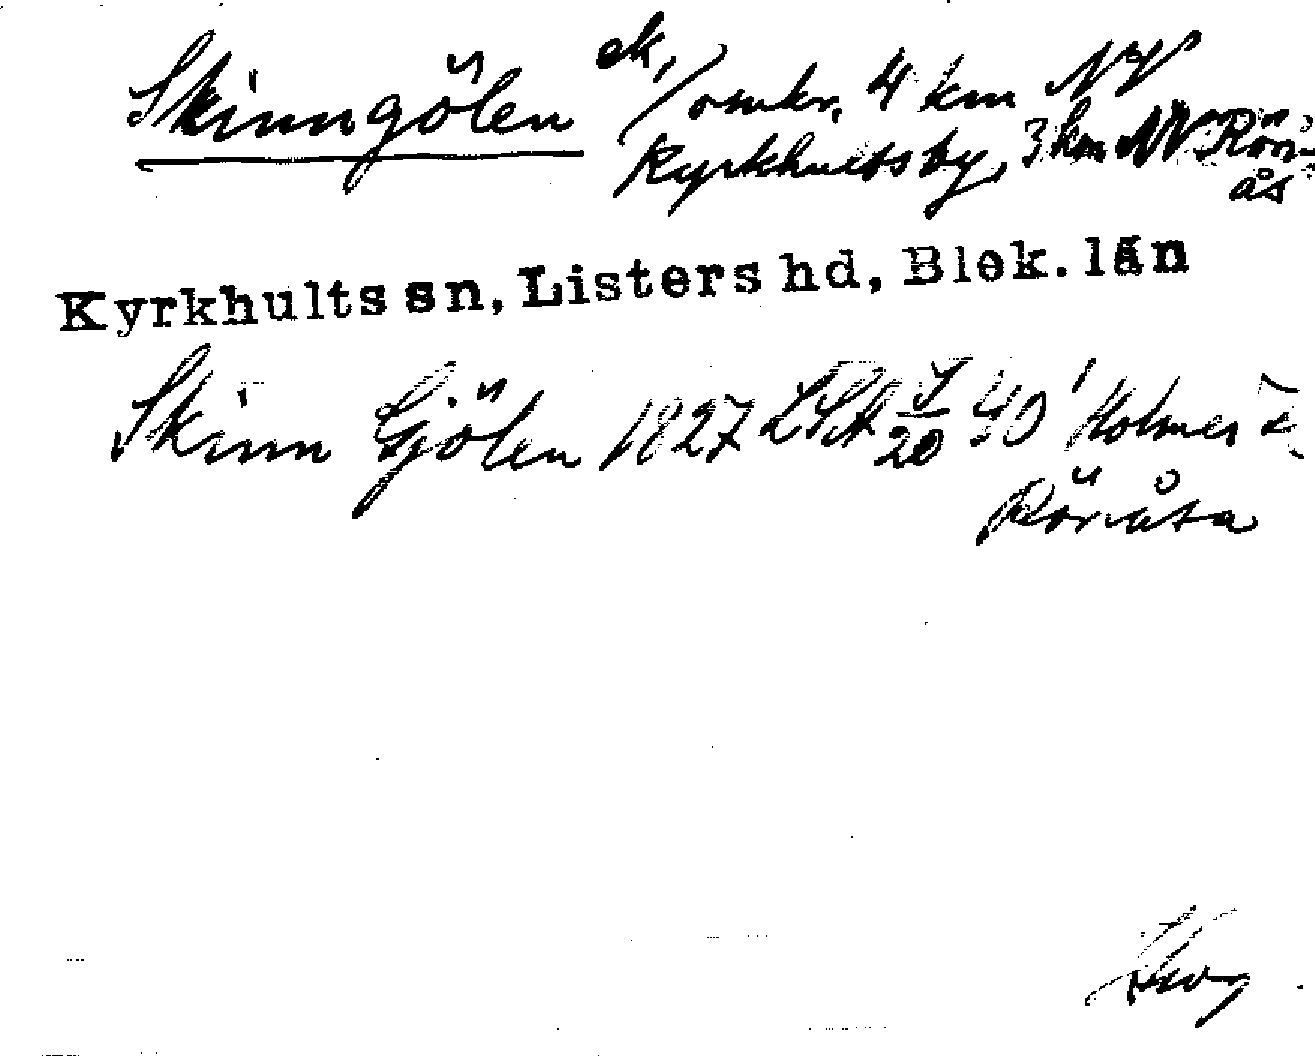 Skinngölen ek, / omkr. 4 km NV
Kyrkhults by, 3 km NV Rön-
ås
Kyrkhults sn, Listers hd, Blek. län
Skinn Gjölen 1827 LSA 20 40 Holmer
Rönåsa